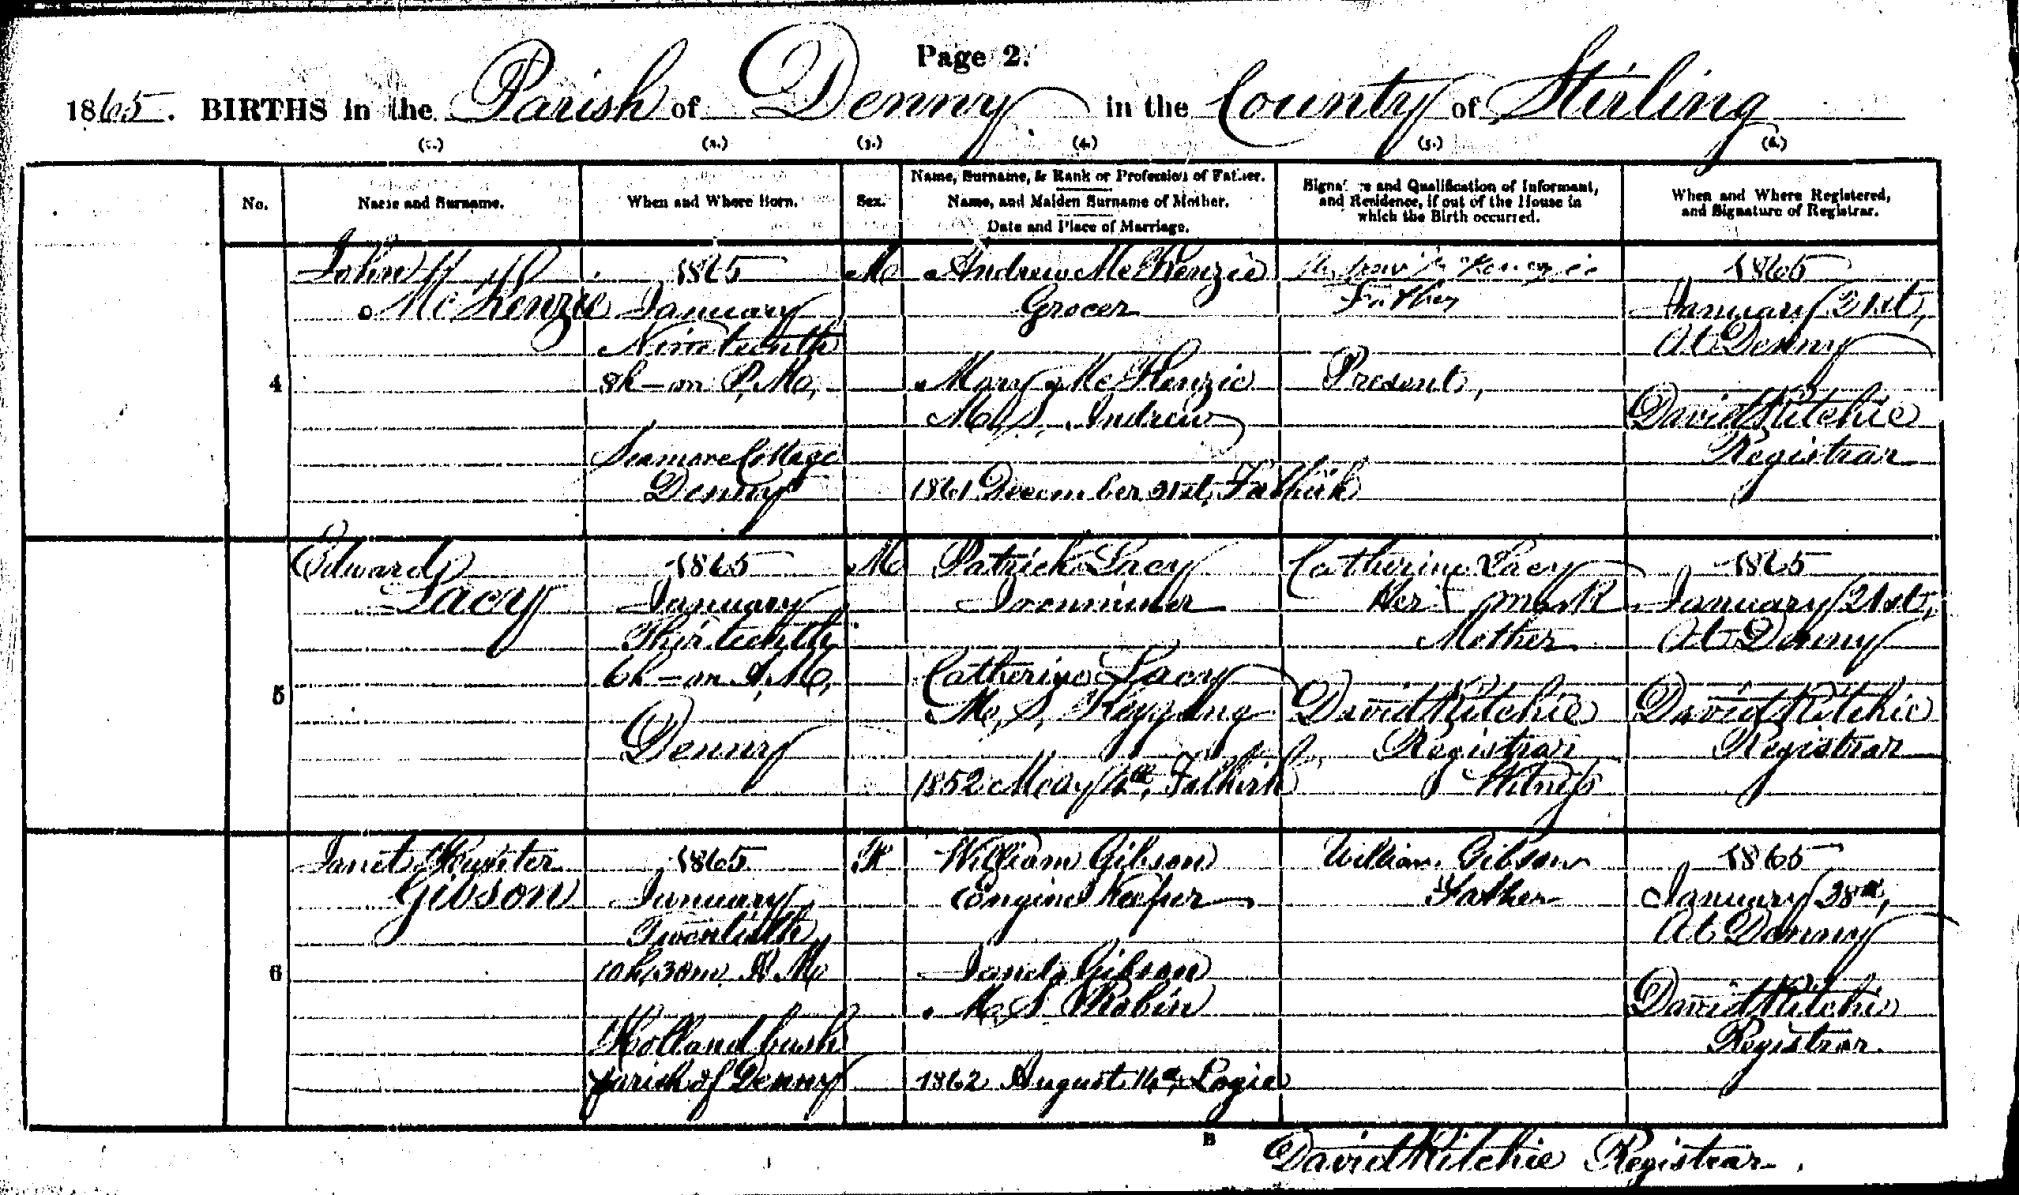 Page 2.
1865. BIRTHS in the Parish of Denny in the County of Stirling
(1.) (2.) (3.) (4.) (5.) (6.)
No.
Name and Surname.
When and Where Born.
Sex.
Name, Surname, & Rank or Profession of Father.
Name, and Maiden Surname of Mother.
Date and Place of Marriage.
Signature and Qualification of Informant,
and Residence, if out of the House in
which the Birth occurred.
When and Where Registered,
and Signature of Registrar.
4
John
McKenzie
1865
January
Nineteenth
8h - m P.M.
Cottage
Denny
M
Andrew McKenzie
Grocer
Mary McKenzie
M.S. Andrew
1861 December 31st, Falkirk
McKenzie
Father
Present,
1865
January 31st,
At Denny
David Ritchie
Registrar
5
Edward
Lacy
1865
January
Thirteenth
6h - m A.M.
Denny
M
Patrick Lacy
Ironminer
Catherine Lacy
M.S.
1852 May Falkirk
Catherine Lacy
Her + mark
Mother
David Ritchie
Registrar
Witness
1865
January 21st,
At Denny
David Ritchie
Registrar
6
Janet Hunter
Gibson
1865
January
Twentieth
10h, 30m
Hollandbush
parish of Denny
F
William Gibson
Engine Keeper
Janet Gibson
M.S. Robin
1862 August 14th, Logie
William Gibson
Father
1865
January 28th,
At Denny
David Ritchie
Registrar.
B
David Ritchie Registrar.